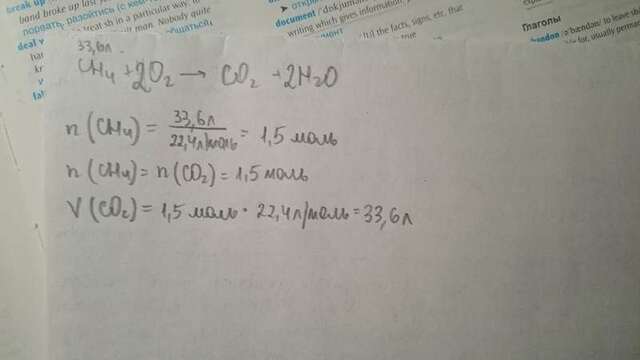 break up
band broke up last
порвать, разойтись (с кем-то)
treat sb in a particular way,
well man. Nobody quite
deal
общаться)
откры
document /
writing which gives information,
the facts, signs, etc. that
true
Глаголы
/əˈbændən/ to leave
for, usually perman
33,6л.
CH₄ + 2O₂ → CO₂ + 2H₂O
n (CH₄) = 33,6л / 22,4л/моль = 1,5 моль
n (CH₄) = n (CO₂) = 1,5 моль
V (CO₂) = 1,5 моль · 22,4л/моль = 33,6л